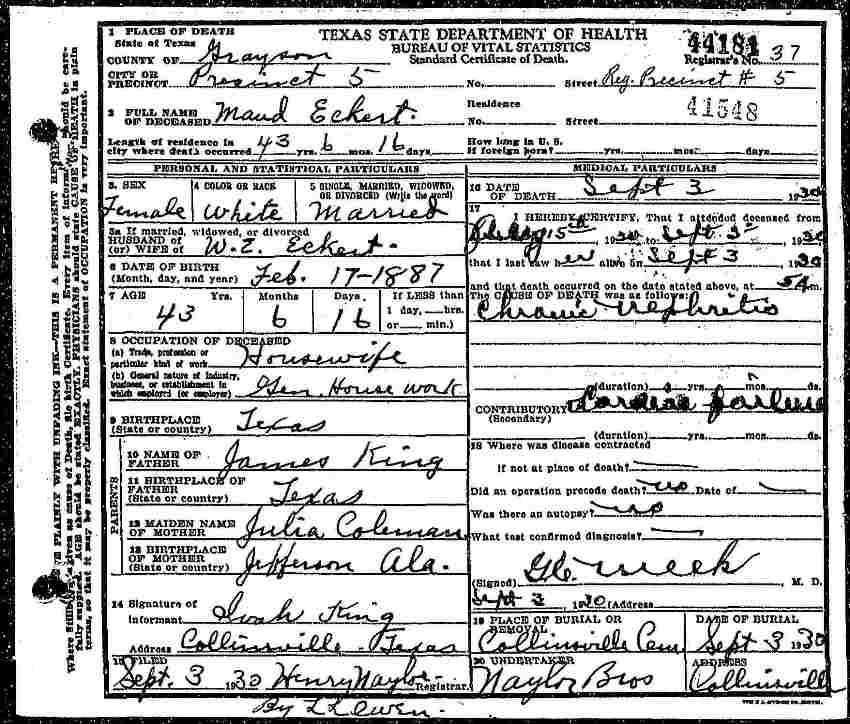 TEXAS STATE DEPARTMENT OF HEALTH
BUREAU OF VITAL STATISTICS
Standard Certificate of Death.
44181
Registrar's No. 37
41548
1 PLACE OF DEATH
State of Texas
COUNTY OF Grayson
CITY OR PRECINCT Precinct 5 No. Street Reg. Precinct # 5
2 FULL NAME OF DECEASED Maud Eckert.
Residence No. Street
Length of residence in city where death occurred 43 yrs. 6 mos. 16 days
How long in U. S. If foreign born? yrs. mos. days
PERSONAL AND STATISTICAL PARTICULARS
3. SEX Female
4 COLOR OR RACE White
5 SINGLE, MARRIED, WIDOWED, OR DIVORCED (Write the word) Married
5a If married, widowed, or divorced
HUSBAND OF (or) WIFE OF W. Z. Eckert.
6 DATE OF BIRTH (Month, day, and year) Feb. 17-1887
7 AGE Yrs. 43 Months 6 Days. 16
If LESS than 1 day, hrs. or min.)
8 OCCUPATION OF DECEASED
(a) Trade, profession or particular kind of work Housewife
(b) General nature of industry, business, or establishment in which employed (or employer) Gen. House work
9 BIRTHPLACE (State or country) Texas
PARENTS
10 NAME OF FATHER James King
11 BIRTHPLACE OF FATHER (State or country) Texas
12 MAIDEN NAME OF MOTHER Julia Coleman
13 BIRTHPLACE OF MOTHER (State or country) Jefferson Ala.
14 Signature of Informant King
Address Collinsville - Texas
15 FILED Sept. 3 1930 Henry Naylor Registrar.
By
MEDICAL PARTICULARS
16 DATE OF DEATH Sept 3 1930
17 I HEREBY CERTIFY, That I attended deceased from
15th, 1930 to Sept. 3rd, 1930
that I last saw her alive on Sept 3 1930
and that death occurred on the date stated above, at 5 A m.
The CAUSE OF DEATH was as follows:
Chronic Nephritis
(duration) 3 yrs. mos. ds.
CONTRIBUTORY (Secondary) Cardiac failure
(duration) yrs. mos. ds.
18 Where was disease contracted
If not at place of death?
Did an operation precede death? no Date of
Was there an autopsy? no
What test confirmed diagnosis?
(Signed) M. D.
Sept 3 1930 (Address
19 PLACE OF BURIAL OR REMOVAL Collinsville Cem.
DATE OF BURIAL Sept 3 1930
20 UNDERTAKER Naylor Bros
ADDRESS Collinsville